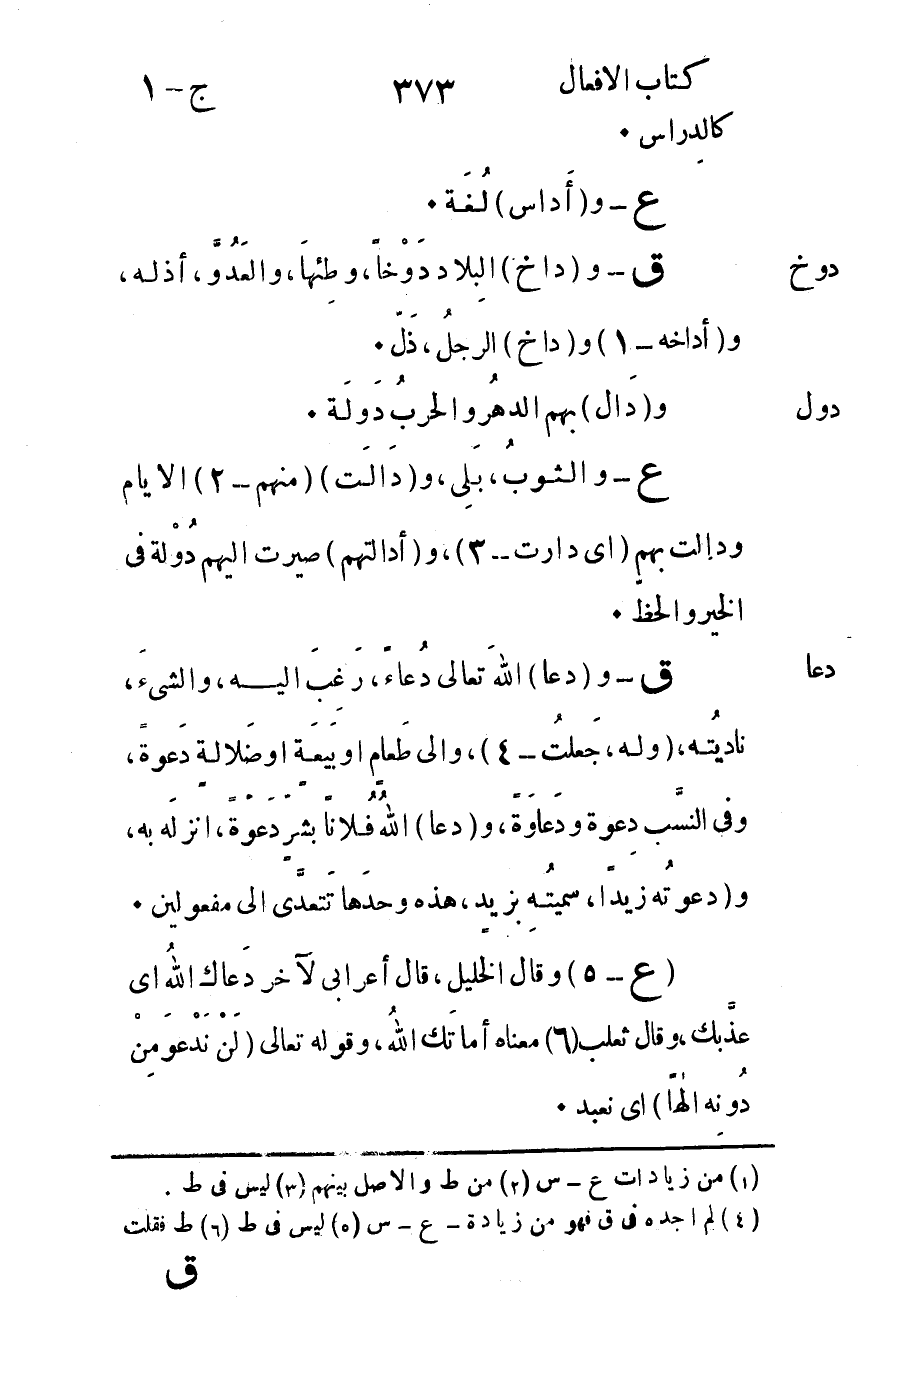 كتاب الافعال ٣٧٣ ج – ١
كالدِراس ٠
ع – و(أَداس) لُغَة ٠
دوخ ق – و (داخ) البِلاد دَوْخاً، و طئِها، والعَدُوَّ، أذله،
و (أداخه – ١) و (داخ) الرجلُ، ذَلّ ٠
دول و(دَال) بهم الدهرُ والحربُ دَولَة ٠
ع – و الثوبُ، بَلِى، و(دَالَت) (منهم – ٢) الايام
ودالت بهم (اى دارت – ٣)، و (أدالتهم) صيرت اليهم دُوْلة فى
الخير والحظّ ٠
دعا ق – و (دعا) اللهَ تعالى دُعاءً، رَغِبَ اليه، والشىءَ،
ناديتُه، (وله، جَعلتُ – ٤)، والى طَعام او بَيعَة او ضَلالة دَعوةً،
وفى النسَّب دِعوة ودَعاوَةً، و (دعا) اللهُ فُلاناً بشرٍّ دَعوَةً، انزلَه به،
و (دعوتُه زيداً، سميتُه بِزيدٍ، هذه وحدَها تَتعدَّى الى مفعولين ٠
(ع – ٥) وقال الخليل، قال أعرابى لآخر دَعاك اللهُ اى
عذَّبك، وقال ثعلب(٦) معناه أماتَك اللهُ، وقوله تعالى (لَنْ نَدْعوَ مِنْ
دُونِه الٰهًا) اى نعبد ٠
(١) من زيادات ع – س (٢) من ط والاصل بينهم (٣) ليس فى ط .
(٤) لم اجده فى ق فهو من زيادة – ع – س (٥) ليس فى ط (٦) ط فقلت
ق